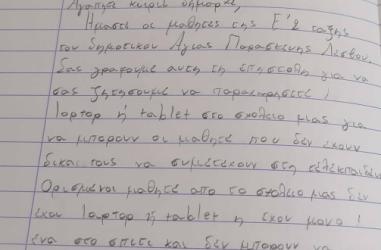 Αγαπητέ κύριε δήμαρχε,
Ήμαστε οι μαθητές της Ε'2 ταξης
του δημοτικου Αγιας Παρασκευης Λεσβου.
Σας γραφουμε αυτη τη επηστολη για να
σας ζητησουμε να παραχωρησετε 1
laptop ή tablet στο σχολειο μας για
να μπορουν οι μαθητέ που δεν εχουν
δικαι τους να συμετεχουν στη τέλεκπαιδευ
Ορισμενοι μαθητέ απο το σχολειο μας δεν
εχουν laptop ή tablet η εχουν μονο 1
ένα στο σπιτι και δεν μπορουν να